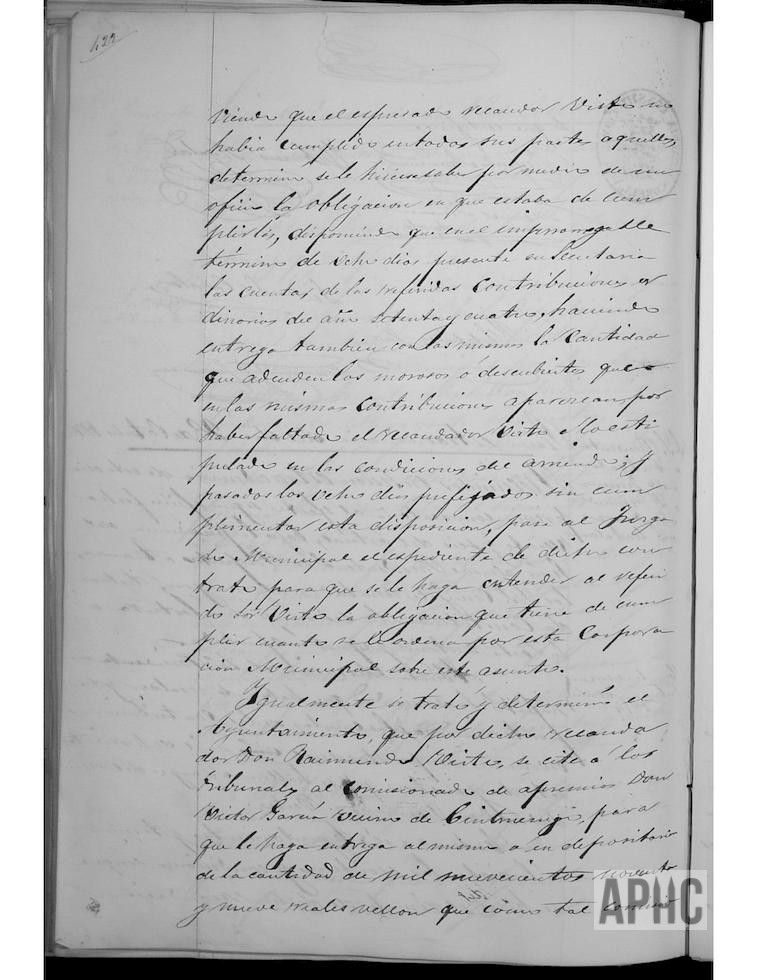 422
viendo que el espresado recaudor Viste no
habia cumplido en todas sus partes aquellas,
determinó se le hiciese saber por medio de un
oficio la obligacion en que estaba de cum
plirlas, disponiendo que en el improrrogable
término de ocho dias presente en Secretaria
las cuentas de las referidas Contribuciones or
dinarias del año setenta y cuatro, haciendo
entrega tambien con las mismas la Cantidad
que adeuden los morosos ó descubiertos que
en las mismas Contribuciones aparezcan, por
haber faltado el recaudador Viste a lo esti
pulado en las condiciones de arriendo; y
pasados los ocho dias prefijados sin cum
plimentar esta disposicion, pase al Juzga
do Municipal el espediente de dicho con
trato para que se le haga entender al referi
do Sor Viste la obligacion que tiene de cum
plir cuanto se le ordena por esta Corpora
cion Municipal sobre este asunto.
Igualmente se trató y determinó el
Ayuntamiento, que por dicho recauda
dor Don Raimundo Viste, se cite á los
tribunales al comisionado de apremios Don
Victor García vecino de, para
que le haga entrega al mismo o en depositario
de la cantidad de mil nuevecientos noventa
y nueve reales vellon que como tal comisio
APHC